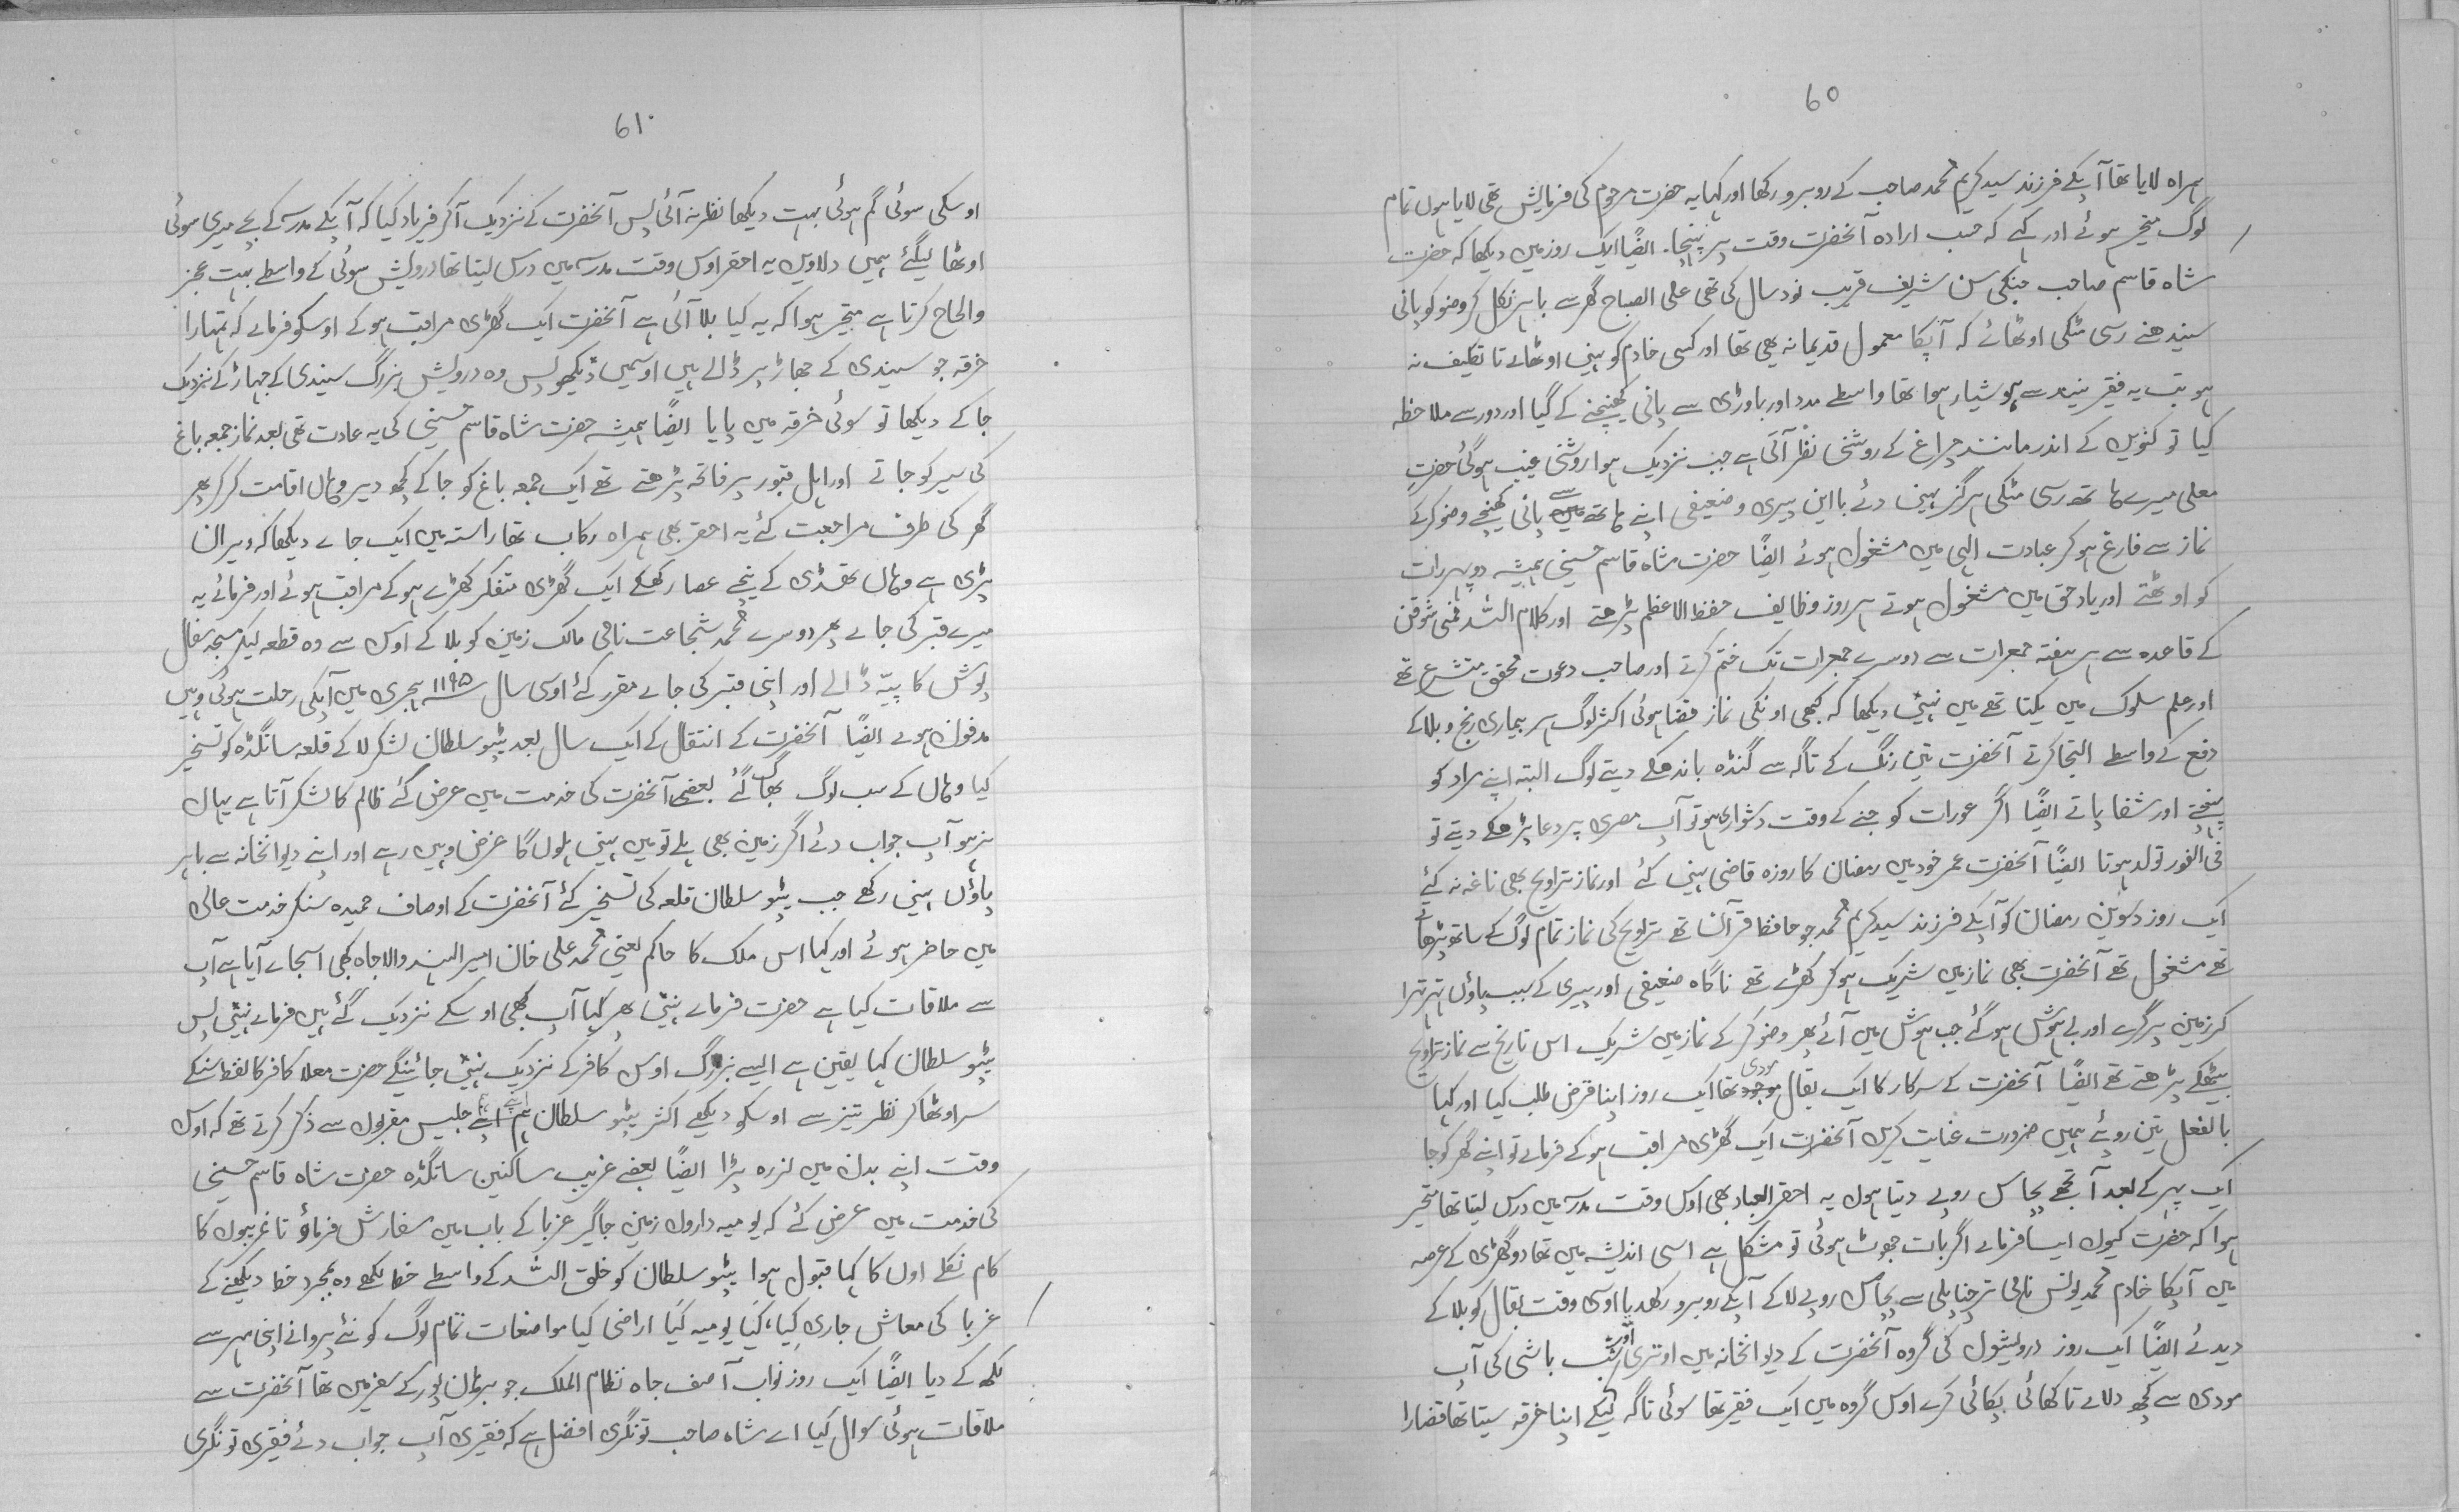 60
ہمراہ لایا تھا آپکے فرزند سید کریم محمد صاحب کے روبرو رکھا اور کہا یہ حضرت مرحوم کی فرمایش تھی لایا ہوں تمام
لوگ متحیر ہوئے اور کہے کہ حسب ارادہ آنحضرت وقت پر پہنچا۔ ایضًا ایک روز میں دیکھا کہ حضرت
شاہ قاسم صاحب جنکی سن شریف قریب نود سال کی تھی علی الصباح گھر سے باہر نکل کر وضو کو پانی
سیندھنے رسی مٹکی اوٹھائے کہ آپکا معمول قدیمانہ یہی تھا اور کسی خادم کو نہیں اوٹھاے تا تکلیف نہ
ہو تب یہ فقیر نیند سے ہوشیار ہوا تھا واسطے مدد اور باوڑی سے پانی کھینچنے کے گیا اور دور سے ملاحظہ
کیا تو کنویں کے اندر مانند چراغ کے روشنی نظر آئی ہے جب نزدیک ہوا روشنی غیب ہوگئی حضرت
معلی میرے ہاتھ رسی مٹکی ہرگز نہیں دئے بااین پیری و ضعیفی اپنے ہاتھ سے پانی کھنچے وضو کرکے
نماز سے فارغ ہوکر عبادت الہی میں مشغول ہوئے ایضًا حضرت شاہ قاسم حسینی ہمیشہ دوپہر رات
کو اوٹھتے اور یاد حق میں مشغول ہوتے ہر روز وظایف حفظ الاعظم پڑھتے اور کلام اللہ فمی بشوقن
کے قاعدہ سے ہر ہفتہ جمعرات سے دوسرے جمعرات تک ختم کرتے اور صاحب دعوت محقق متشرع تھے
اور علم سلوک میں یکتا تھے میں نہیں دیکھا کہ کبھی اونکی نماز قضا ہوئی اکثر لوگ ہر بیماری رنج و بلا کے
دفع کے واسطے التجا کرتے آنحضرت تین رنگ کے تاگہ سے گنڈہ باندھکے دیتے لوگ البتہ اپنے مراد کو
پہنچتے اور شفا پاتے ایضًا اگر عورات کو جننے کے وقت دشواری ہو تو آپ مصری پر دعا پڑھکے دیتے تو
فی الفور تولد ہوتا ایضًا آنحضرت عمر خود میں رمضان کا روزہ قاضی نہیں کئے اور نماز تراویح بھی ناغہ نہ کئے
ایک روز دسویں رمضان کو آپکے فرزند سید کریم محمد جو حافظ قرآن تھے تراویح کی نماز تمام لوگ کے ساتھ پڑھاتے
تھے مشغول تھے آنحضرت بھی نماز میں شریک ہوکر کھڑے تھے ناگاہ ضعیفی اور پیری کے سبب پاؤں تھرتھرا
کر زمین پر گرے اور بے ہوش ہوگئے جب ہوش میں آئے پھر وضو کرکے نماز میں شریک اس تاریخ سے نماز تراویح
بیٹھکے پڑھتے تھے ایضًا آنحضرت کے سرکار کا ایک بقال مودی تھا ایک روز اپنا قرض طلب کیا اور کہا
بالفعل تین روپئے ہمیں ضرورت عنایت کریں آنحضرت ایک گھڑی مراقب ہوکے فرمائے تو اپنے گھر کو جا
ایک پہر کے بعد آ تجھے پچاس روپے دیتا ہوں یہ احقر العباد بھی اوس وقت مدرسہ میں درس لیتا تھا متحیر
ہوا کہ حضرت کیوں ایسا فرمائے اگر بات جھوٹ ہوئی تو مشکل ہے اسی اندیشہ میں تھا دو گھڑی کے عرصہ
میں آپکا خادم محمد یونس نامی ترچناپلی سے پچاس روپے لاکے آپکے روبرو رکھدیا اوسی وقت بقال کو بلاکے
دیدئے ایضًا ایک روز درویشوں کی گروہ آنحضرت کے دیوانخانہ میں اوتری اور شب باشی کی آپ
مودی سے کچھ دلاے تا کھائی پکائی کرے اوس گروہ میں ایک فقیر تھا سوئی تاگہ لیکے اپنا خرقہ سیتا تھا قضارا
61
اوسکی سوئی گم ہوئی بہت دیکھا نظر نہ آئی پس آنحضرت کے نزدیک آکر فریاد کیا کہ آپکے مدرسہ کے بچے میری سوئی
اوٹھا لیگئے ہمیں دلاویں یہ احقر اوس وقت مدرسہ میں درس لیتا تھا درویش سوئی کے واسطے بہت عجز
والحاح کرتا ہے متحیر ہوا کہ یہ کیا بلا آئی ہے آنحضرت ایک گھڑی مراقب ہوکے اوسکو فرمائے کہ تمہارا
خرقہ جو سیندی کے جھاڑ پر ڈالے ہیں اوسمیں دیکھو پس وہ درویش بزرگ سیندی کے جہاڑ کے نزدیک
جاکے دیکھا تو سوئی خرقہ میں پایا ایضًا ہمیشہ حضرت شاہ قاسم حسینی کی یہ عادت تھی بعد نماز جمعہ باغ
کی سیر کو جاتے اور اہل قبور پر فاتحہ پڑھتے تھے ایک جمعہ باغ کو جاکے کچھ دیر وہاں اقامت کرکر پھر
گھر کی طرف مراجعت کئے یہ احقر بھی ہمراہ رکاب تھا راستہ میں ایک جاے دیکھا کہ ویران
پڑی ہے وہاں تھڈی کے نیچے عصا رکھکے ایک گھڑی متفکر کھڑے ہوکے مراقب ہوئے اور فرمائے یہ
میرے قبر کی جاے پھر دوسرے محمد شجاعت نامی مالک زمین کو بلاکے اوس سے وہ قطعہ لیکر مسجد سفال
پوش کا پیتہ ڈالے اور اپنی قبر کی جاے مقرر کئے اوسی سال ۱۱۹۵ ہجری میں آپکی رحلت ہوئی وہیں
مدفون ہوے ایضًا آنحضرت کے انتقال کے ایک سال بعد ٹیپو سلطان لشکر لاکے قلعہ ساتگڈہ کو تسخیر
کیا وہاں کے سب لوگ بھاگ گئے بعضے آنحضرت کی خدمت میں عرض کئے ظالم کا لشکر آتا ہے یہاں
نرہو آپ جواب دئے اگر زمین بھی ہلے تو میں نہیں ہلوں گا غرض وہیں رہے اور اپنے دیوانخانہ سے باہر
پاؤں نہیں رکھے جب ٹیپو سلطان قلعہ کی تسخیر کئے آنحضرت کے اوصاف حمیدہ سنکر خدمت عالی
میں حاضر ہوئے اور کہا اس ملک کا حاکم یعنی محمد علی خان امیر الہند والاجاہ کبھی اسجاے آیا ہے آپ
سے ملاقات کیا ہے حضرت فرماے نہیں پھر کہا آپ کبھی اوسکے نزدیک گئے ہیں فرماے نہیں پس
ٹیپو سلطان کہا یقین ہے ایسے بزرگ اوس کافر کے نزدیک نہیں جائینگے حضرت معلا کافر کا لفظ سنکے
سر اوٹھا کر نظر تیز سے اوسکو دیکھے اکثر ٹیپو سلطان اپنے جلیس مقربوں سے ذکر کرتے تھے کہ اوس
وقت اپنے بدن میں لزرہ پڑا ایضًا بعضے غریب ساکنین ساتگڈہ حضرت شاہ قاسم حسینی
کی خدمت میں عرض کئے کہ یومیہ داروں زمین جاگیر غربا کے باب میں سفارش فرماؤ تا غریبوں کا
کام نکلے اون کا کہا قبول ہوا ٹیپو سلطان کو خلق اللہ کے واسطے خط لکھے وہ بمجرد خط دیکھنے کے
غربا کی معاش جاری کیا، کیا یومیہ کیا اراضی کیا مواضعات تمام لوگ کو نئے پروانے اپنی مہر سے
لکھ کے دیا ایضًا ایک روز نواب آصف جاہ نظام الملک جو برہان پور کے سفر میں تھا آنحضرت سے
ملاقات ہوئی سوال کیا اے شاہ صاحب تونگری افضل ہے کہ فقیری آپ جواب دئے فقیری تونگری